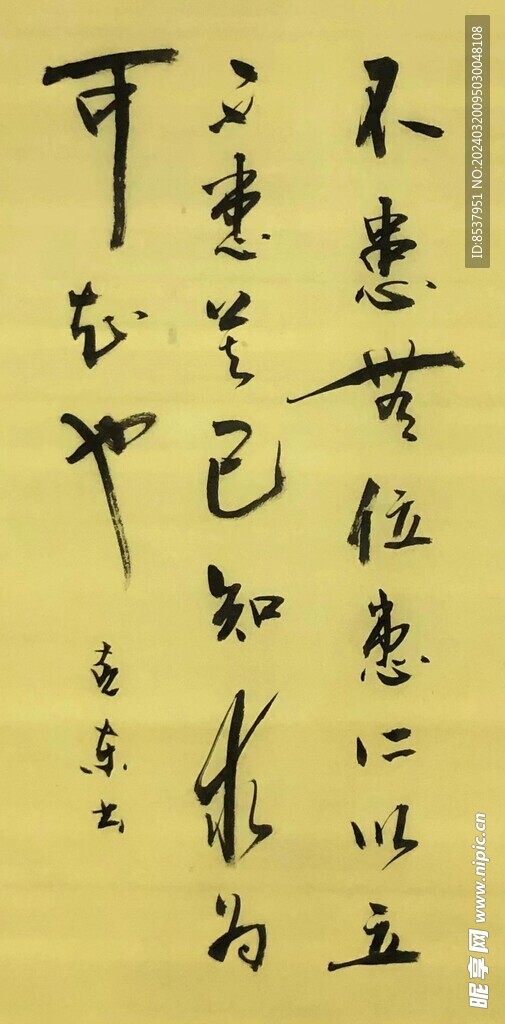 不患無位患所以立
不患莫己知求为
可知也
东书
ID:8537951 NO:20240320095030048108
昵享网 www.nipic.cn